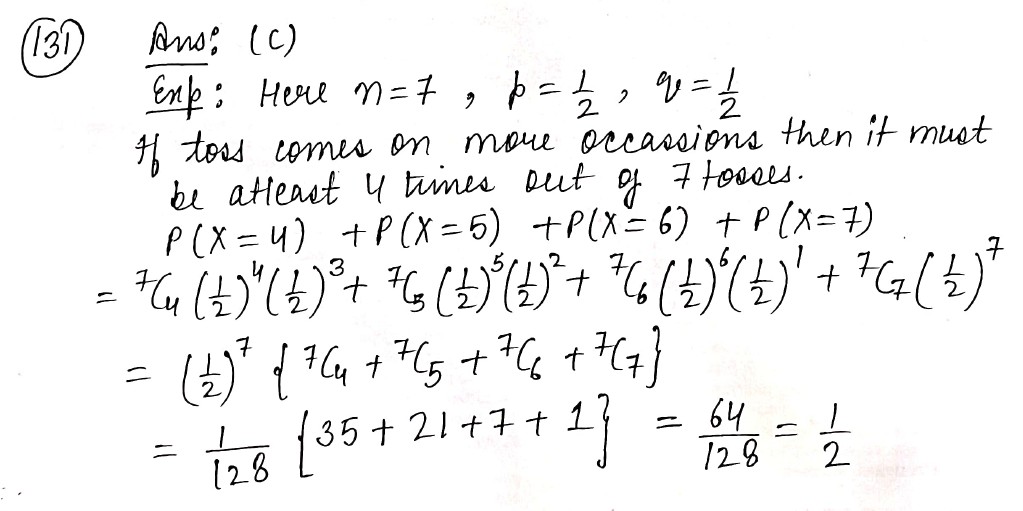 (131) Ans: (C)
Exp: Here n=7, p=1/2, q=1/2
If toss comes on more occassions then it must
be atleast 4 times out of 7 tosses.
P(X=4) +P(X=5) +P(X=6) +P(X=7)
= ⁷C₄(1/2)⁴(1/2)³+ ⁷C₅(1/2)⁵(1/2)²+ ⁷C₆(1/2)⁶(1/2)¹ + ⁷C₇(1/2)⁷
= (1/2)⁷ {⁷C₄ + ⁷C₅ + ⁷C₆ + ⁷C₇}
= 1/128 {35 + 21 + 7 + 1} = 64/128 = 1/2